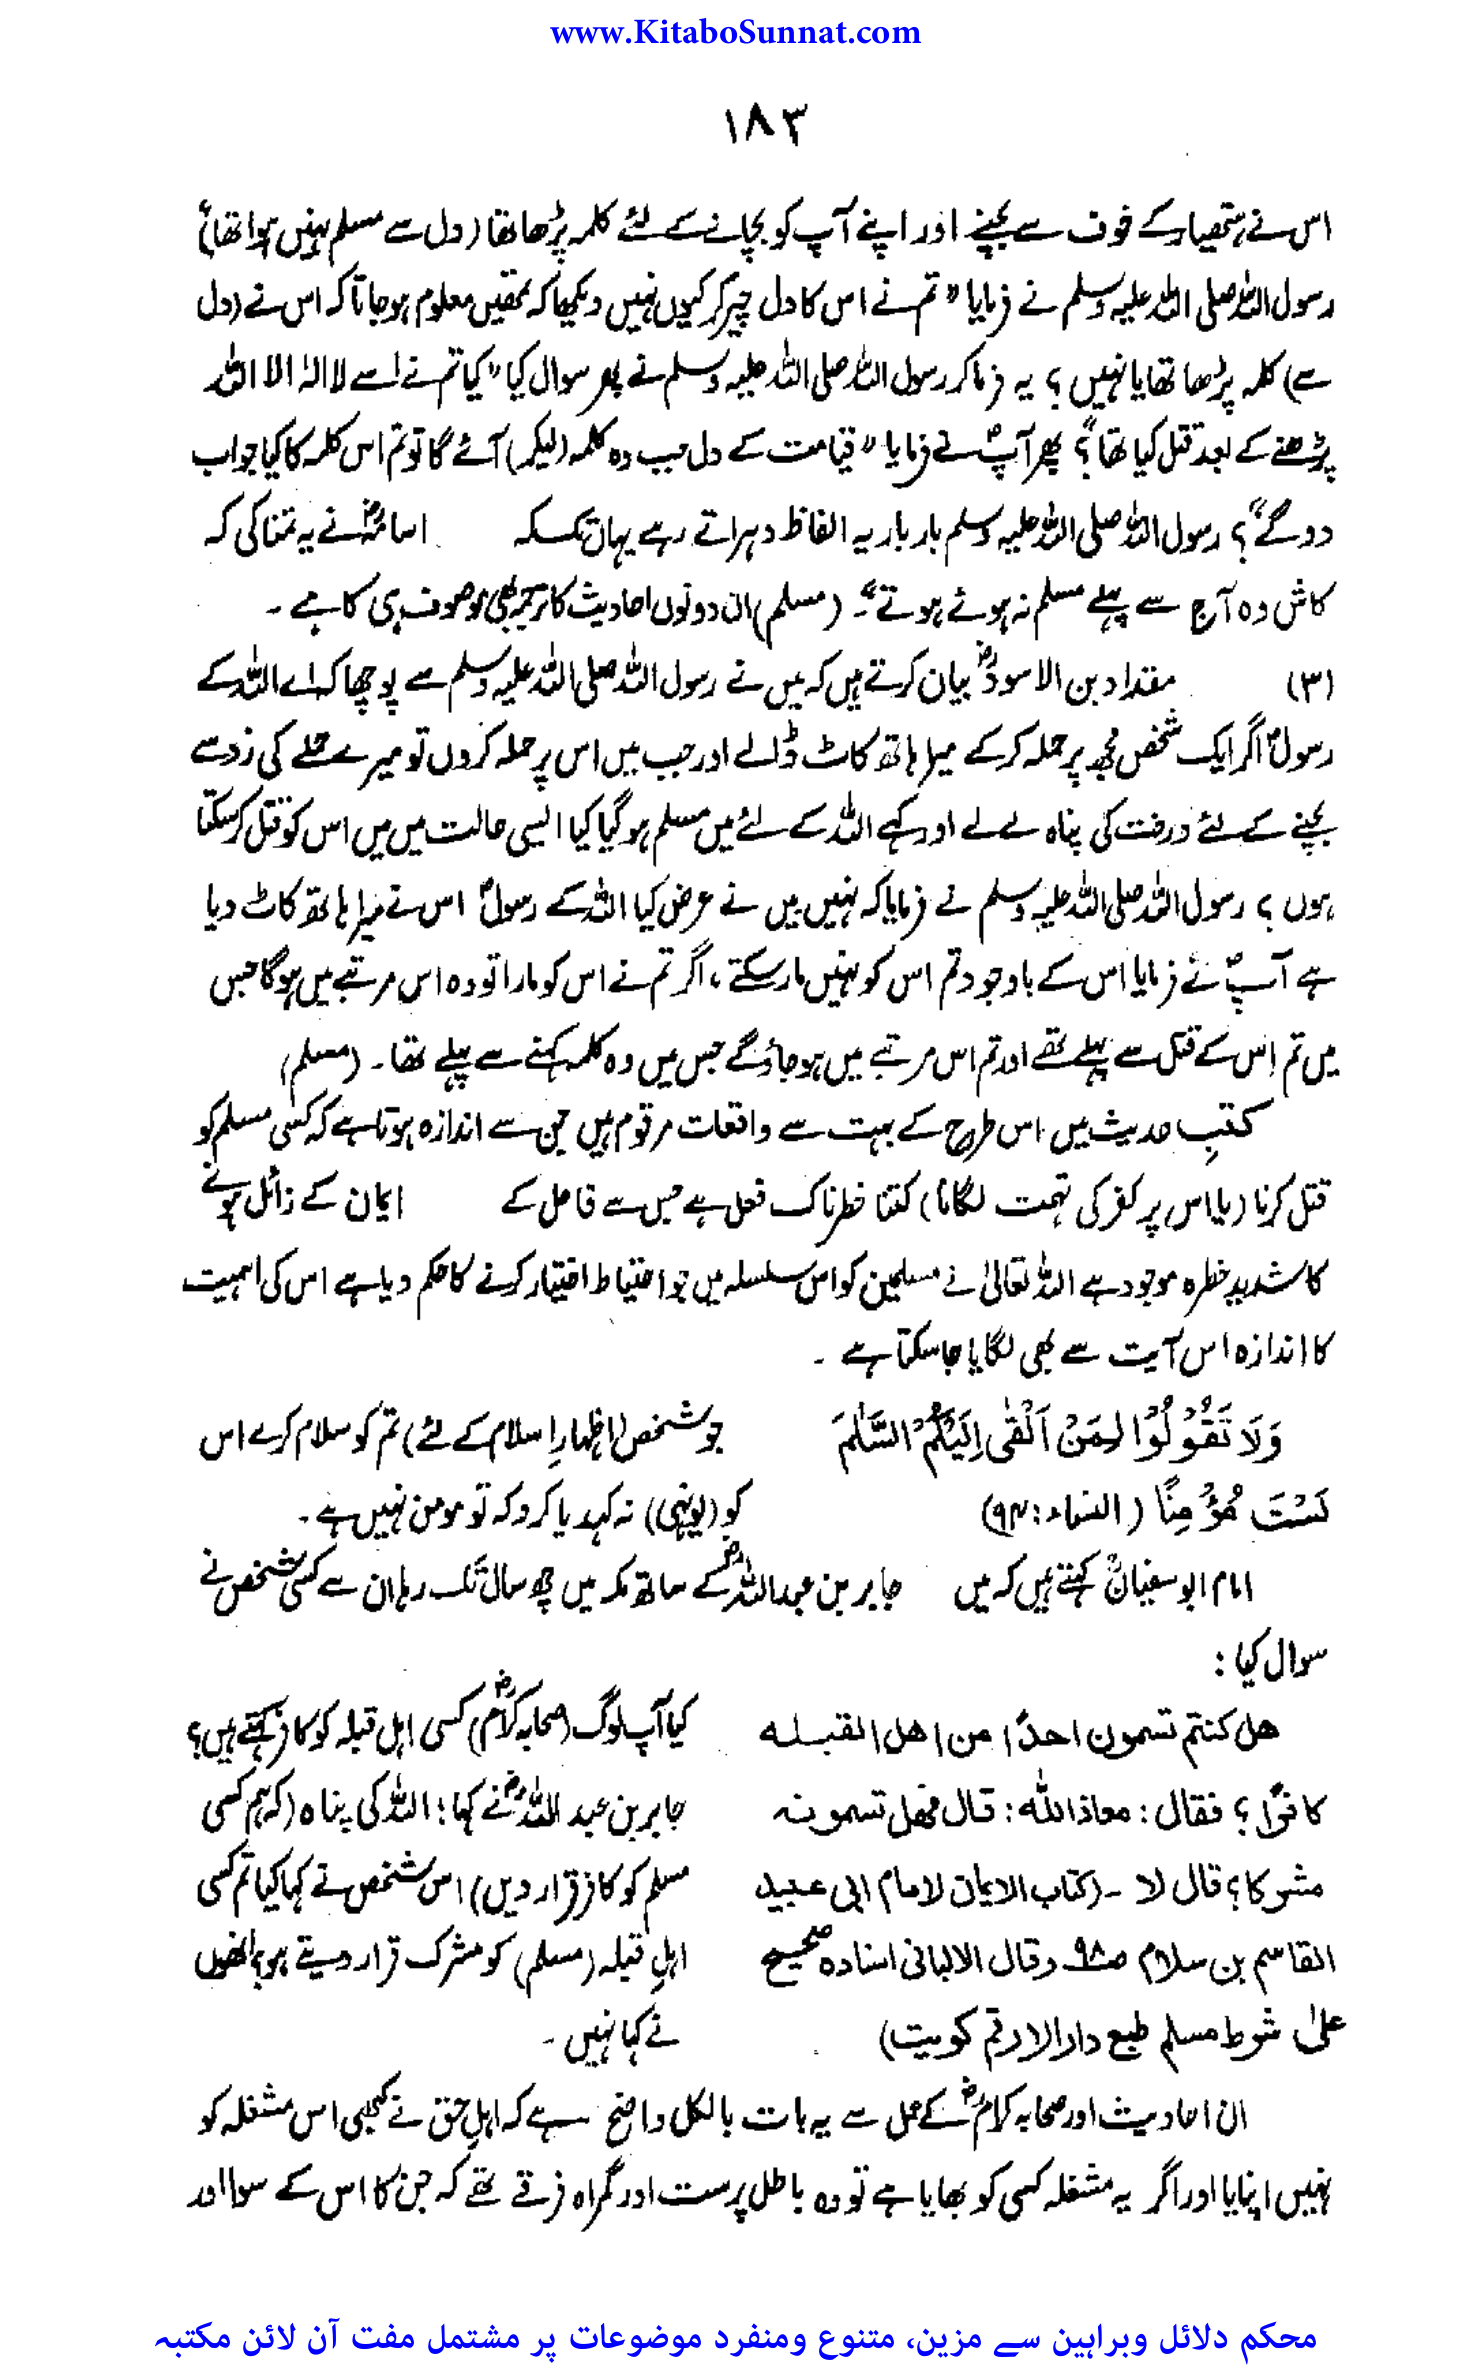 www.KitaboSunnat.com
١٨٣
اس نے ہتھیار کے خوف سے بچنے اور اپنے آپ کو بچانے کے لئے کلمہ پڑھا تھا (دل سے مسلم نہیں ہوا تھا)"
رسول اللہ صلی اللہ علیہ وسلم نے فرمایا "تم نے اس کا دل چیر کر کیوں نہیں دیکھا کہ تمھیں معلوم ہو جاتا کہ اس نے (دل
سے) کلمہ پڑھا تھا یا نہیں ؟ یہ فرما کر رسول اللہ صلی اللہ علیہ وسلم نے پھر سوال کیا "کیا تم نے اسے لا الہ الا اللہ
پڑھنے کے بعد قتل کیا تھا"؟ پھر آپؐ نے فرمایا "قیامت کے دل جب وہ کلمہ (لیکر) آئے گا تو تم اس کلمہ کا کیا جواب
دو گے"؟ رسول اللہ صلی اللہ علیہ وسلم بار بار یہ الفاظ دہراتے رہے یہاں تک کہ اسامہؓ نے یہ تمنا کی کہ
کاش وہ آج سے پہلے مسلم نہ ہوئے ہوتے"۔ (مسلم) ان دونوں احادیث کا ترجمہ بھی موصوف ہی کا ہے ۔
(٣) مقداد بن الاسودؓ بیان کرتے ہیں کہ میں نے رسول اللہ صلی اللہ علیہ وسلم سے پوچھا کہ اے اللہ کے
رسولؐ اگر ایک شخص مجھ پر حملہ کر کے میرا ہاتھ کاٹ ڈالے اور جب میں اس پر حملہ کروں تو میرے حملے کی زد سے
بچنے کے لئے درخت کی پناہ لے لے اور کہے اللہ کے لئے میں مسلم ہو گیا کیا ایسی حالت میں میں اس کو قتل کر سکتا
ہوں ؟ رسول اللہ صلی اللہ علیہ وسلم نے فرمایا کہ نہیں میں نے عرض کیا اللہ کے رسولؐ اس نے میرا ہاتھ کاٹ دیا
ہے آپؐ نے فرمایا اس کے باوجود تم اس کو نہیں مار سکتے ، اگر تم نے اس کو مارا تو وہ اس مرتبے میں ہوگا جس
میں تم اس کے قتل سے پہلے تھے اور تم اس مرتبے میں ہو جاؤ گے جس میں وہ کلمہ کہنے سے پہلے تھا ۔ (مسلم)
کتبِ حدیث میں اس طرح کے بہت سے واقعات مرقوم ہیں جن سے اندازہ ہوتا ہے کہ کسی مسلم کو
قتل کرنا (یا اس پر کفر کی تہمت لگانا) کتنا خطرناک فعل ہے جس سے فاعل کے ایمان کے زائل ہونے
کا شدید خطرہ موجود ہے اللہ تعالیٰ نے مسلمین کو اس سلسلہ میں جو احتیاط اختیار کرنے کا حکم دیا ہے اس کی اہمیت
کا اندازہ اس آیت سے بھی لگایا جا سکتا ہے ۔
وَلَا تَقُوْلُوْا لِمَنْ اَلْقٰى اِلَيْكُمُ السَّلٰمَ جو شخص (اظہارِ اسلام کے لئے) تم کو سلام کرے اس
لَسْتَ مُؤْمِنًا (النساء : ٩٤) کو (یونہی) نہ کہدیا کرو کہ تو مومن نہیں ہے ۔
امام ابو سفیانؒ کہتے ہیں کہ میں جابر بن عبد اللہؓ کے ساتھ مکہ میں چھ سال تک رہا ان سے کسی شخص نے
سوال کیا :
هل كنتم تسمون احدًا من اهل القبله کیا آپ لوگ (صحابہ کرامؓ) کسی اہل قبلہ کو کافر کہتے ہیں؟
كافرًا ؟ فقال : معاذ الله : قال فهل تسمونه جابر بن عبد اللہؓ نے کہا : اللہ کی پناہ (کہ ہم کسی
مشركا؟ قال لا ۔ (كتاب الايمان لامام ابى عبيد مسلم کو کافر قرار دیں) اس شخص نے کہا کیا تم کسی
القاسم بن سلام صـ٩٨ـ وقال الالبانى اسناده صحيح اہلِ قبلہ (مسلم) کو مشرک قرار دیتے ہو؟ انھوں
على شرط مسلم طبع دار الارقم كويت) نے کہا نہیں ۔
ان احادیث اور صحابہ کرامؓ کے عمل سے یہ بات بالکل واضح ہے کہ اہلِ حق نے کبھی اس مشغلہ کو
نہیں اپنایا اور اگر یہ مشغلہ کسی کو بھایا ہے تو وہ باطل پرست اور گمراہ فرقے تھے کہ جن کا اس کے سوا اور
محکم دلائل وبراہین سے مزین، متنوع ومنفرد موضوعات پر مشتمل مفت آن لائن مکتبہ